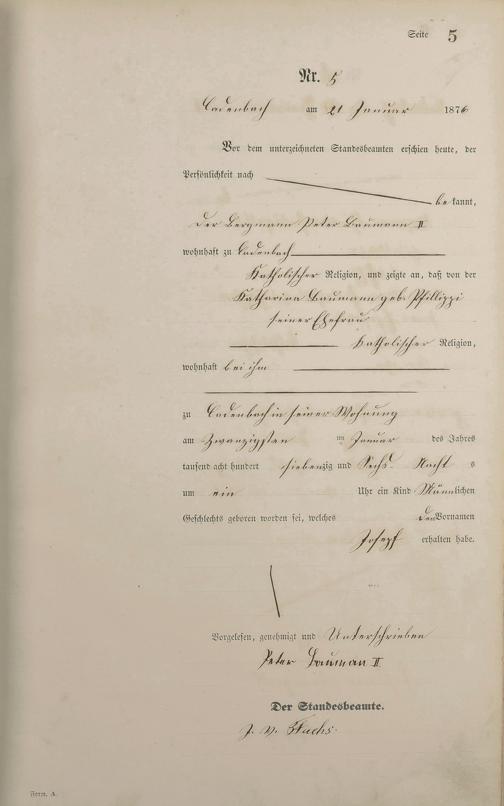 Seite 5
Nr. 5
Cadenbach am 21 Januar 1876
Vor dem unterzeichneten Standesbeamten erschien heute, der
Persönlichkeit nach
bekannt,
der Bergmann Peter Baumann II
wohnhaft zu Cadenbach
Katholischer Religion, und zeigte an, daß von der
Katharina Baumann geb. Phillippi
seiner Ehefrau
katholischer Religion,
wohnhaft bei ihm
zu Cadenbach in seiner Wohnung
am Zwanzigsten im Januar des Jahres
tausend acht hundert siebenzig und Sechs Nachts
um ein Uhr ein Kind Männlichen
Geschlechts geboren worden sei, welches den Vornamen
Josepf erhalten habe.
Vorgelesen, genehmigt und Unterschrieben
Peter Bauman II
Der Standesbeamte.
J. V. Fuchs.
Form. A.